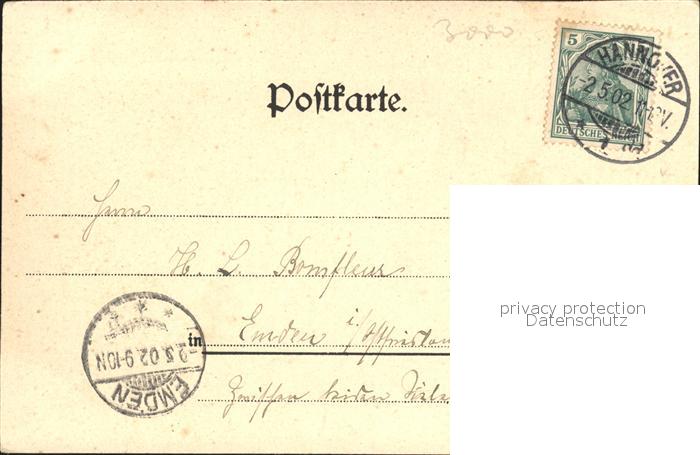 3000
5
HANNOVER
2.5.02.
DEUTSCHES REICH
Postkarte.
Herrn
H. L. Bonfleur
privacy protection
Datenschutz
Emden i/Ostfriesland
in
2.5.02.9-10N
EMDEN
Zwischen beiden